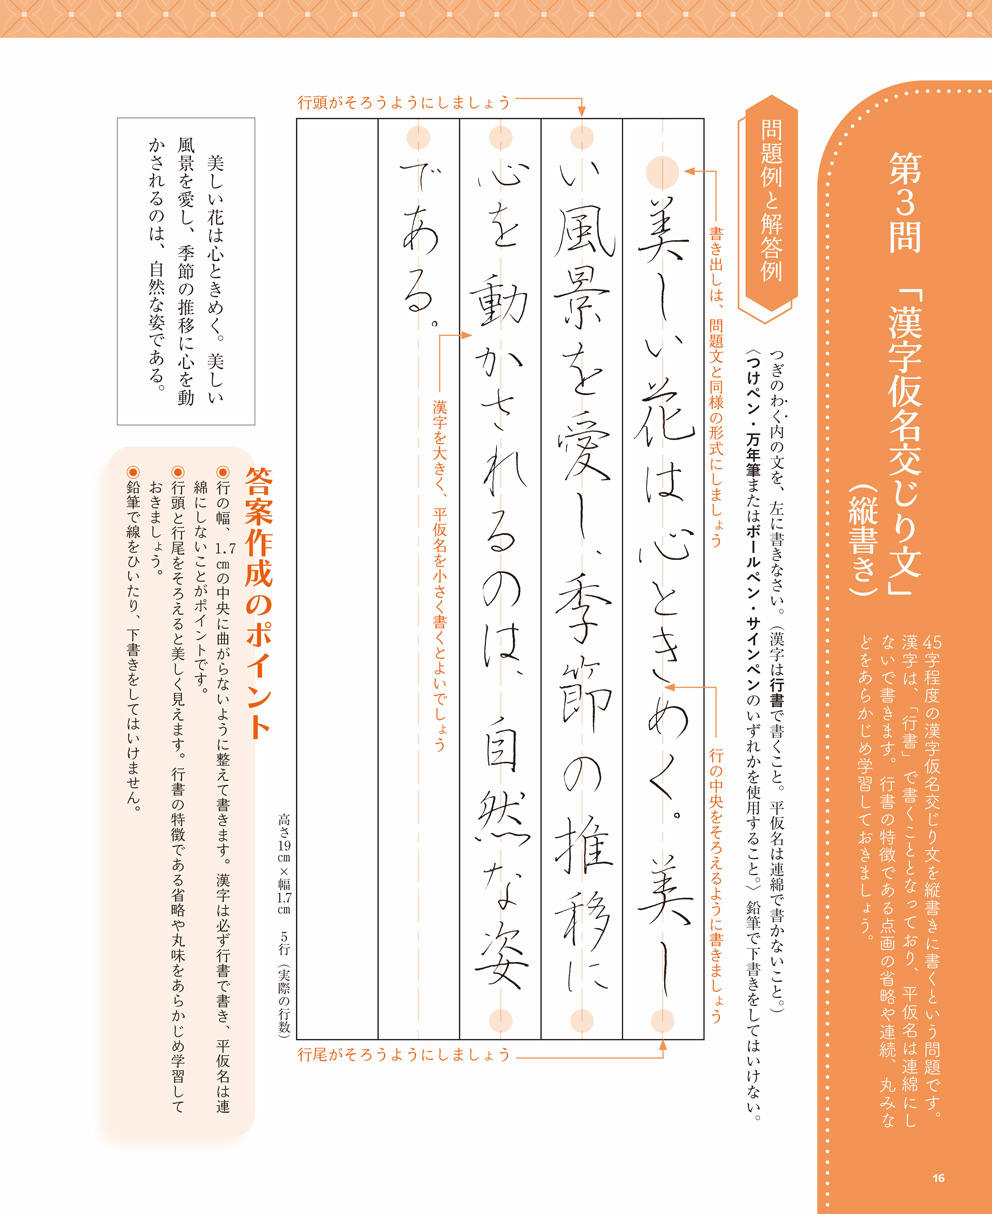 第3問 「漢字仮名交じり文」
（縦書き）
45字程度の漢字仮名交じり文を縦書きに書くという問題です。
漢字は、「行書」で書くこととなっており、平仮名は連綿にし
ないで書きます。行書の特徴である点画の省略や連続、丸みな
どをあらかじめ学習しておきましょう。
16
問題例と解答例
つぎのわく内の文を、左に書きなさい。（漢字は行書で書くこと。平仮名は連綿で書かないこと。）
〈つけペン・万年筆またはボールペン・サインペンのいずれかを使用すること。〉鉛筆で下書きをしてはいけない。
書き出しは、問題文と同様の形式にしましょう
行の中央をそろえるように書きましょう
行頭がそろうようにしましょう
美しい花は心ときめく。美し
い風景を愛し、季節の推移に
心を動かされるのは、自然な姿
である。
漢字を大きく、平仮名を小さく書くとよいでしょう
行尾がそろうようにしましょう
高さ19㎝×幅1.7㎝ 5行（実際の行数）
美しい花は心ときめく。美しい
風景を愛し、季節の推移に心を動
かされるのは、自然な姿である。
答案作成のポイント
◉行の幅、1.7㎝の中央に曲がらないように整えて書きます。漢字は必ず行書で書き、平仮名は連
綿にしないことがポイントです。
◉行頭と行尾をそろえると美しく見えます。行書の特徴である省略や丸味をあらかじめ学習して
おきましょう。
◉鉛筆で線をひいたり、下書きをしてはいけません。